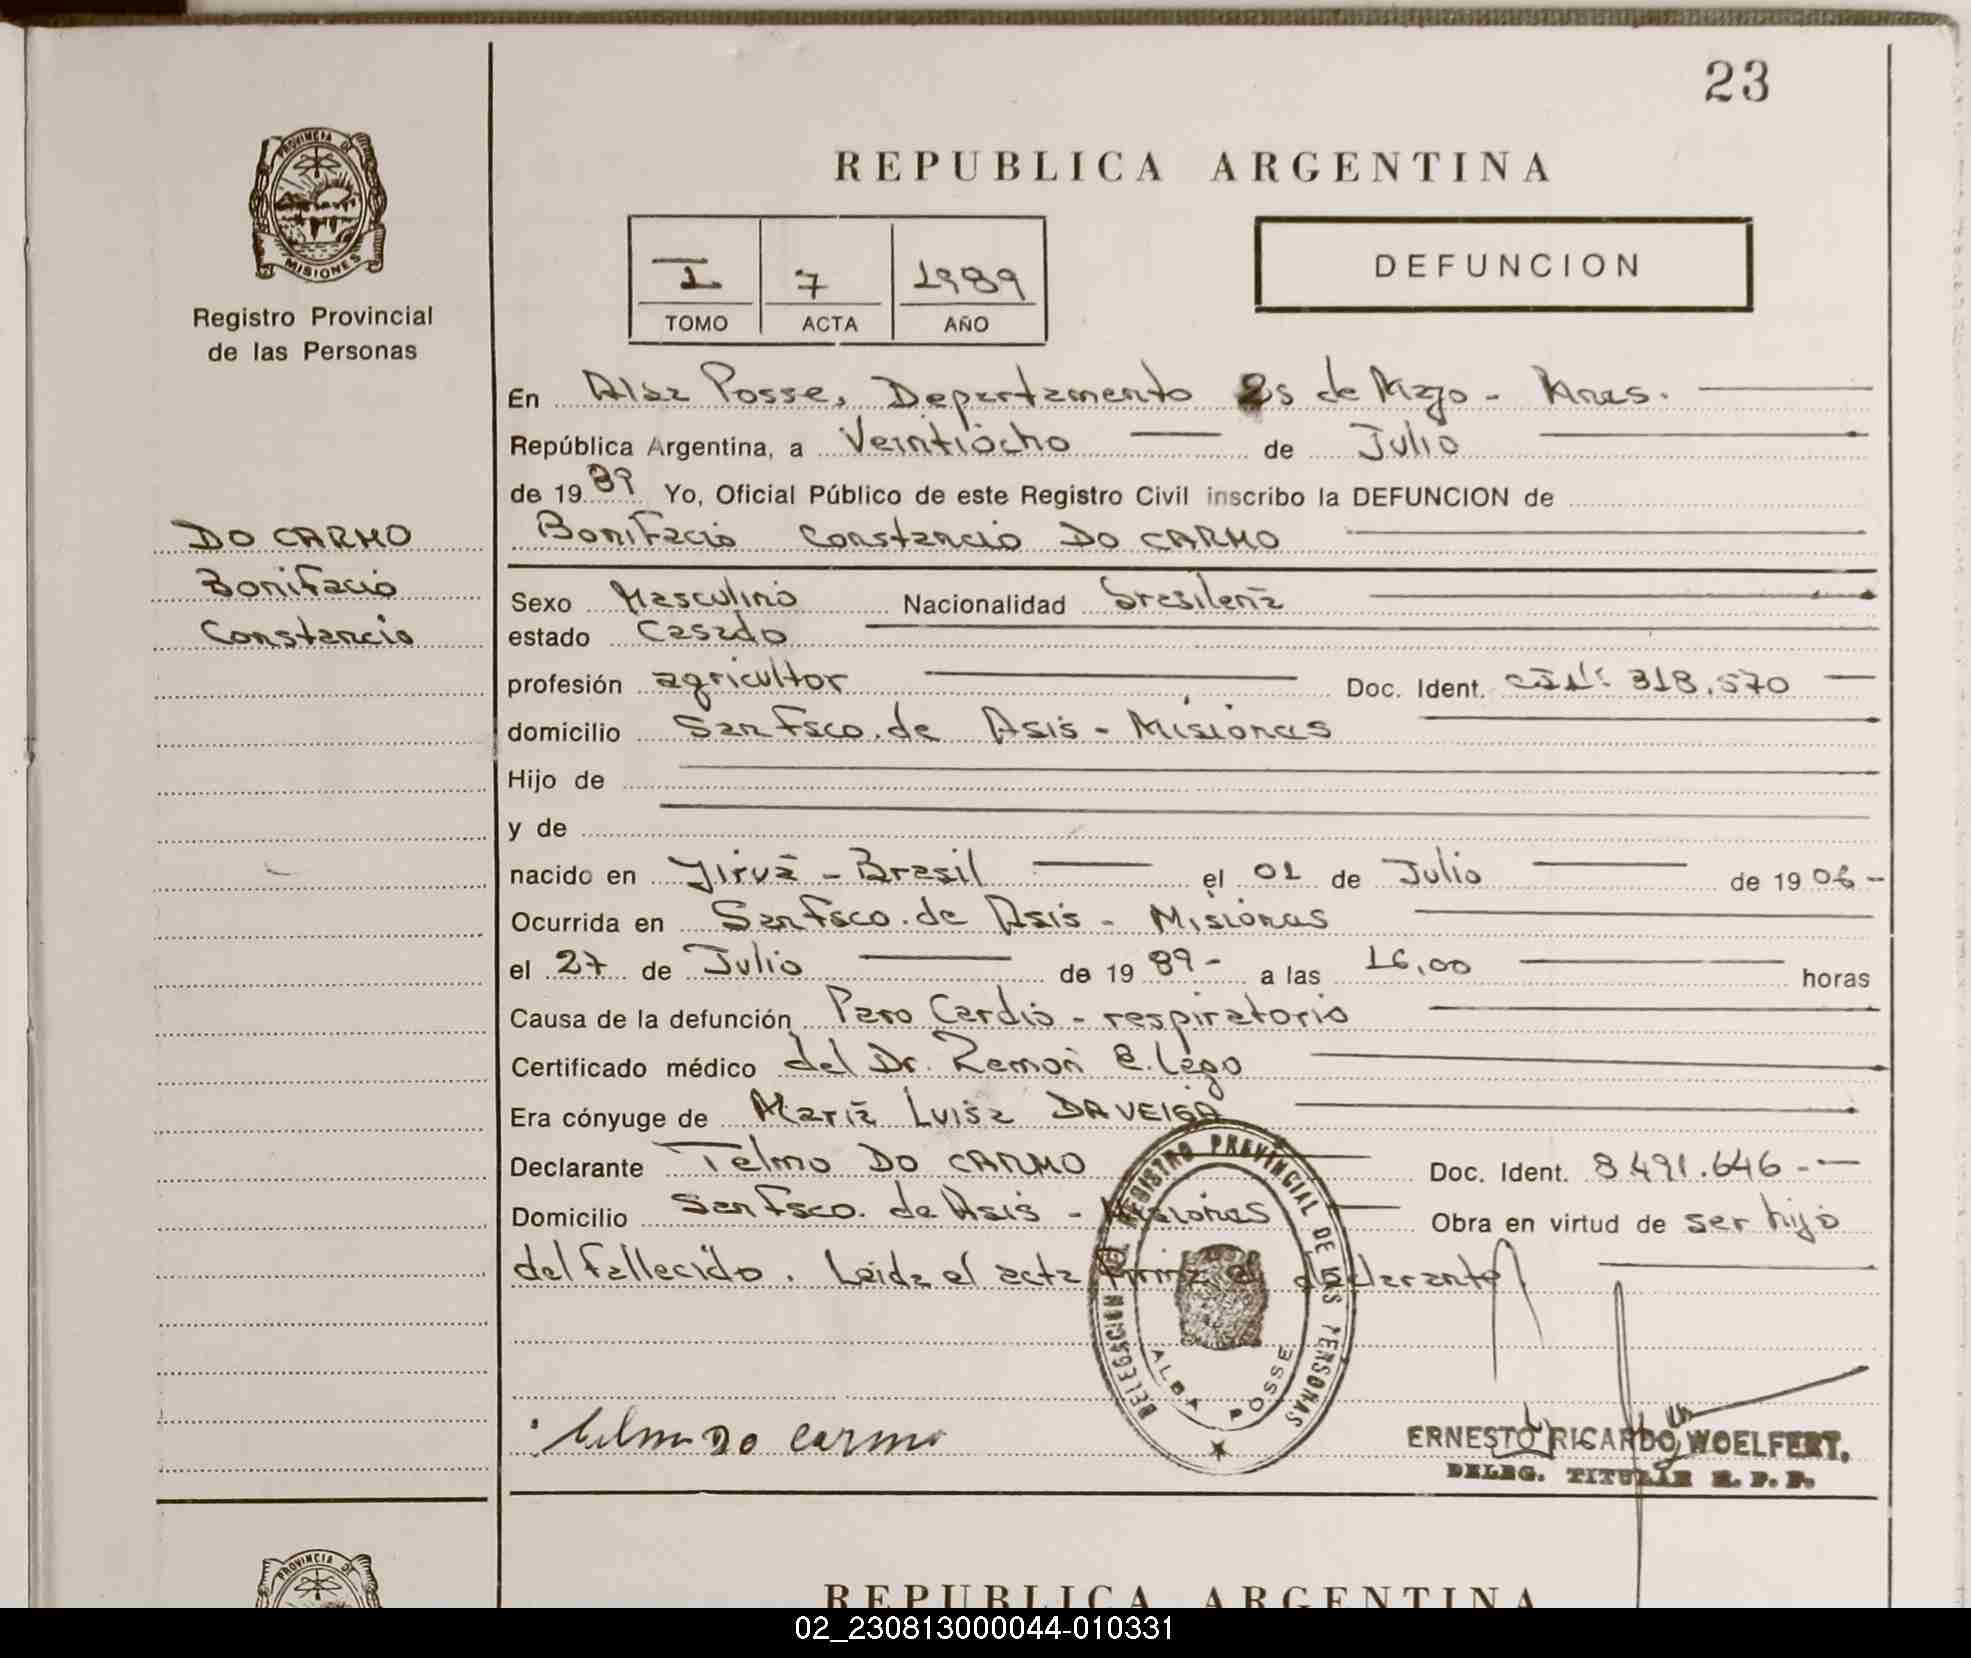 23
PROVINCIA DE
MISIONES
Registro Provincial
de las Personas
REPUBLICA ARGENTINA
I 7 1989
TOMO ACTA AÑO
DEFUNCION
En Alba Posse, Departamento 25 de Mayo - Mnes.
República Argentina, a Veintiocho de Julio
de 1989 Yo, Oficial Público de este Registro Civil inscribo la DEFUNCION de
Bonifacio Constancio DO CARMO
DO CARMO
Bonifacio
Constancio
Sexo Masculino Nacionalidad brasileña
estado Casado
profesión agricultor Doc. Ident. 318.570
domicilio San Fsco. de Asís - Misiones
Hijo de
y de
nacido en - Brasil el 01 de Julio de 1906-
Ocurrida en San Fsco. de Asís - Misiones
el 27 de Julio de 1989- a las 16,00 horas
Causa de la defunción Paro Cardio - respiratorio
Certificado médico del Dr. Ramón E. Lago
Era cónyuge de María Luisa DA VEIGA
Declarante Telmo DO CARMO Doc. Ident. 8.491.646-
Domicilio San Fsco. de Asís - Misiones Obra en virtud de ser hijo
del fallecido. Leída el acta firma el declarante.
DELEGACION REGISTRO PROVINCIAL DE LAS PERSONAS
ALBA POSSE
Telmo Do Carmo
ERNESTO RICARDO WOELFERT.
DELEG. TITULAR R. P. P.
PROVINCIA DE
REPUBLICA ARGENTINA
02_230813000044-010331